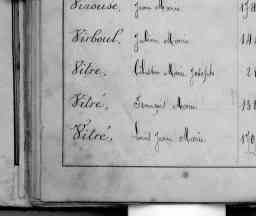 Virouse, Jean Marie
Virboul, Julien Marie 141
Vitre, Marie Joseph 2
Vitré, François Marie 131
Vitré, Louis Jean Marie 170